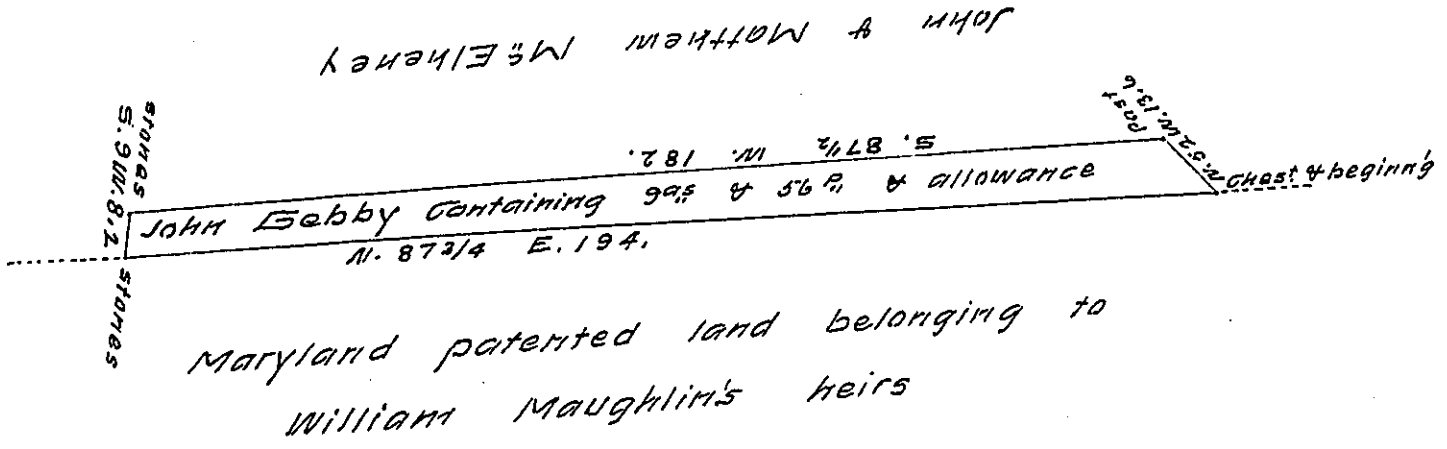 John & Matthew McElheney
stones
S. 9 W. 8,2
stones
S. 87 1/2 W. 182.
post
N. 52 W. 13.6
Chest & beginn'g
John Gebby Containing 9as & 56 P & allowance
N. 87 3/4 E. 194.
Maryland patented land belonging to
William Maughlin's heirs